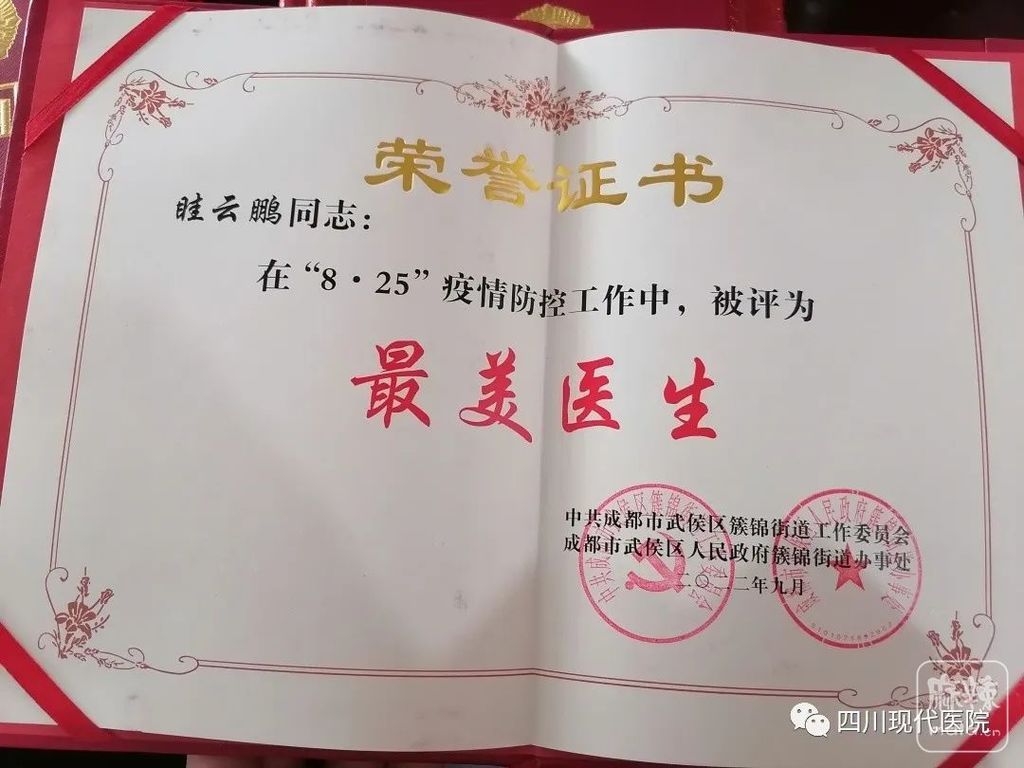 荣誉证书
眭云鹏同志：
在“8·25”疫情防控工作中，被评为
最美医生
中共成都市武侯区簇锦街道工作委员会
成都市武侯区人民政府簇锦街道办事处
二〇二二年九月
四川现代医院
麻辣